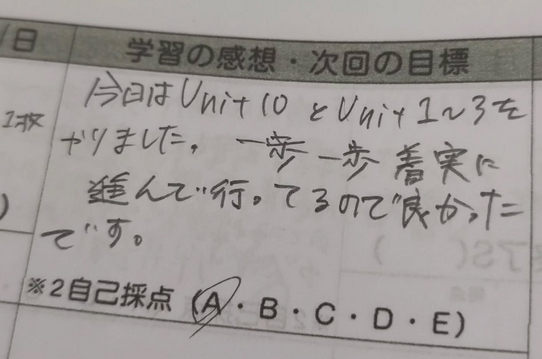 日
学習の感想・次回の目標
1枚
今日はUnit 10とUnit 1〜3を
やりました。一歩一歩着実に
進んで行ってるので良かった
です。
)
※2自己採点 (A・B・C・D・E)